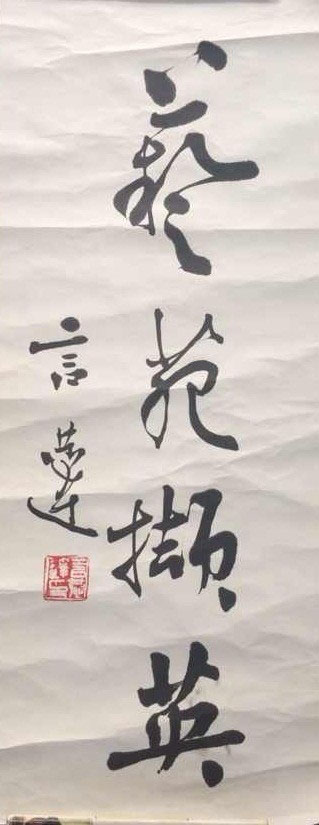 藝苑擷英
言恭達